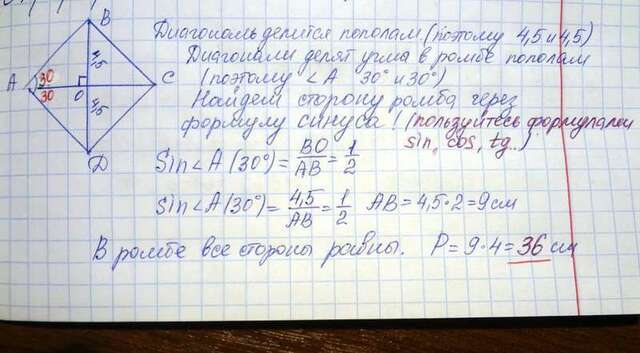 B
Диагональ делится пополам (поэтому 4,5 и 4,5)
4,5
Диагонали делят углы в ромбе пополам
A 30
30
O
C
(поэтому ∠A 30° и 30°)
4,5
Найдем сторону ромба через
формулу синуса! (пользуйтесь формулами
sin, cos, tg..)
D
Sin∠A (30°) = BO/AB = 1/2
Sin∠A (30°) = 4,5/AB = 1/2 AB = 4,5·2 = 9 см
В ромбе все стороны равны. P = 9·4 = 36 см